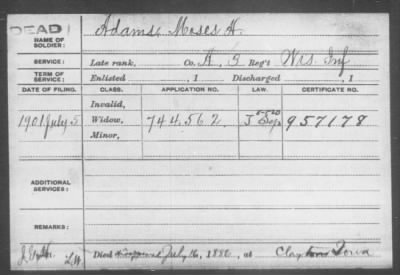 DEAD
NAME OF SOLDIER: Adams, Moses H.
SERVICE: Late rank, Co. A, 3 Reg't Wis. Inf
TERM OF SERVICE: Enlisted , 1 Discharged , 1
DATE OF FILING. CLASS. APPLICATION NO. LAW. CERTIFICATE NO.
Invalid,
1901 July 5 Widow, 744.562 957178
Minor,
ADDITIONAL SERVICES:
REMARKS:
Died July 16, 1886, at Clayton Iowa